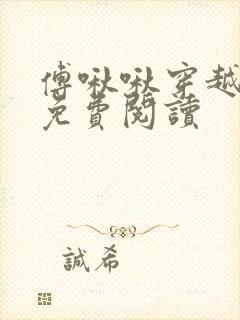 傅啾啾穿越
免費閱讀
誠希